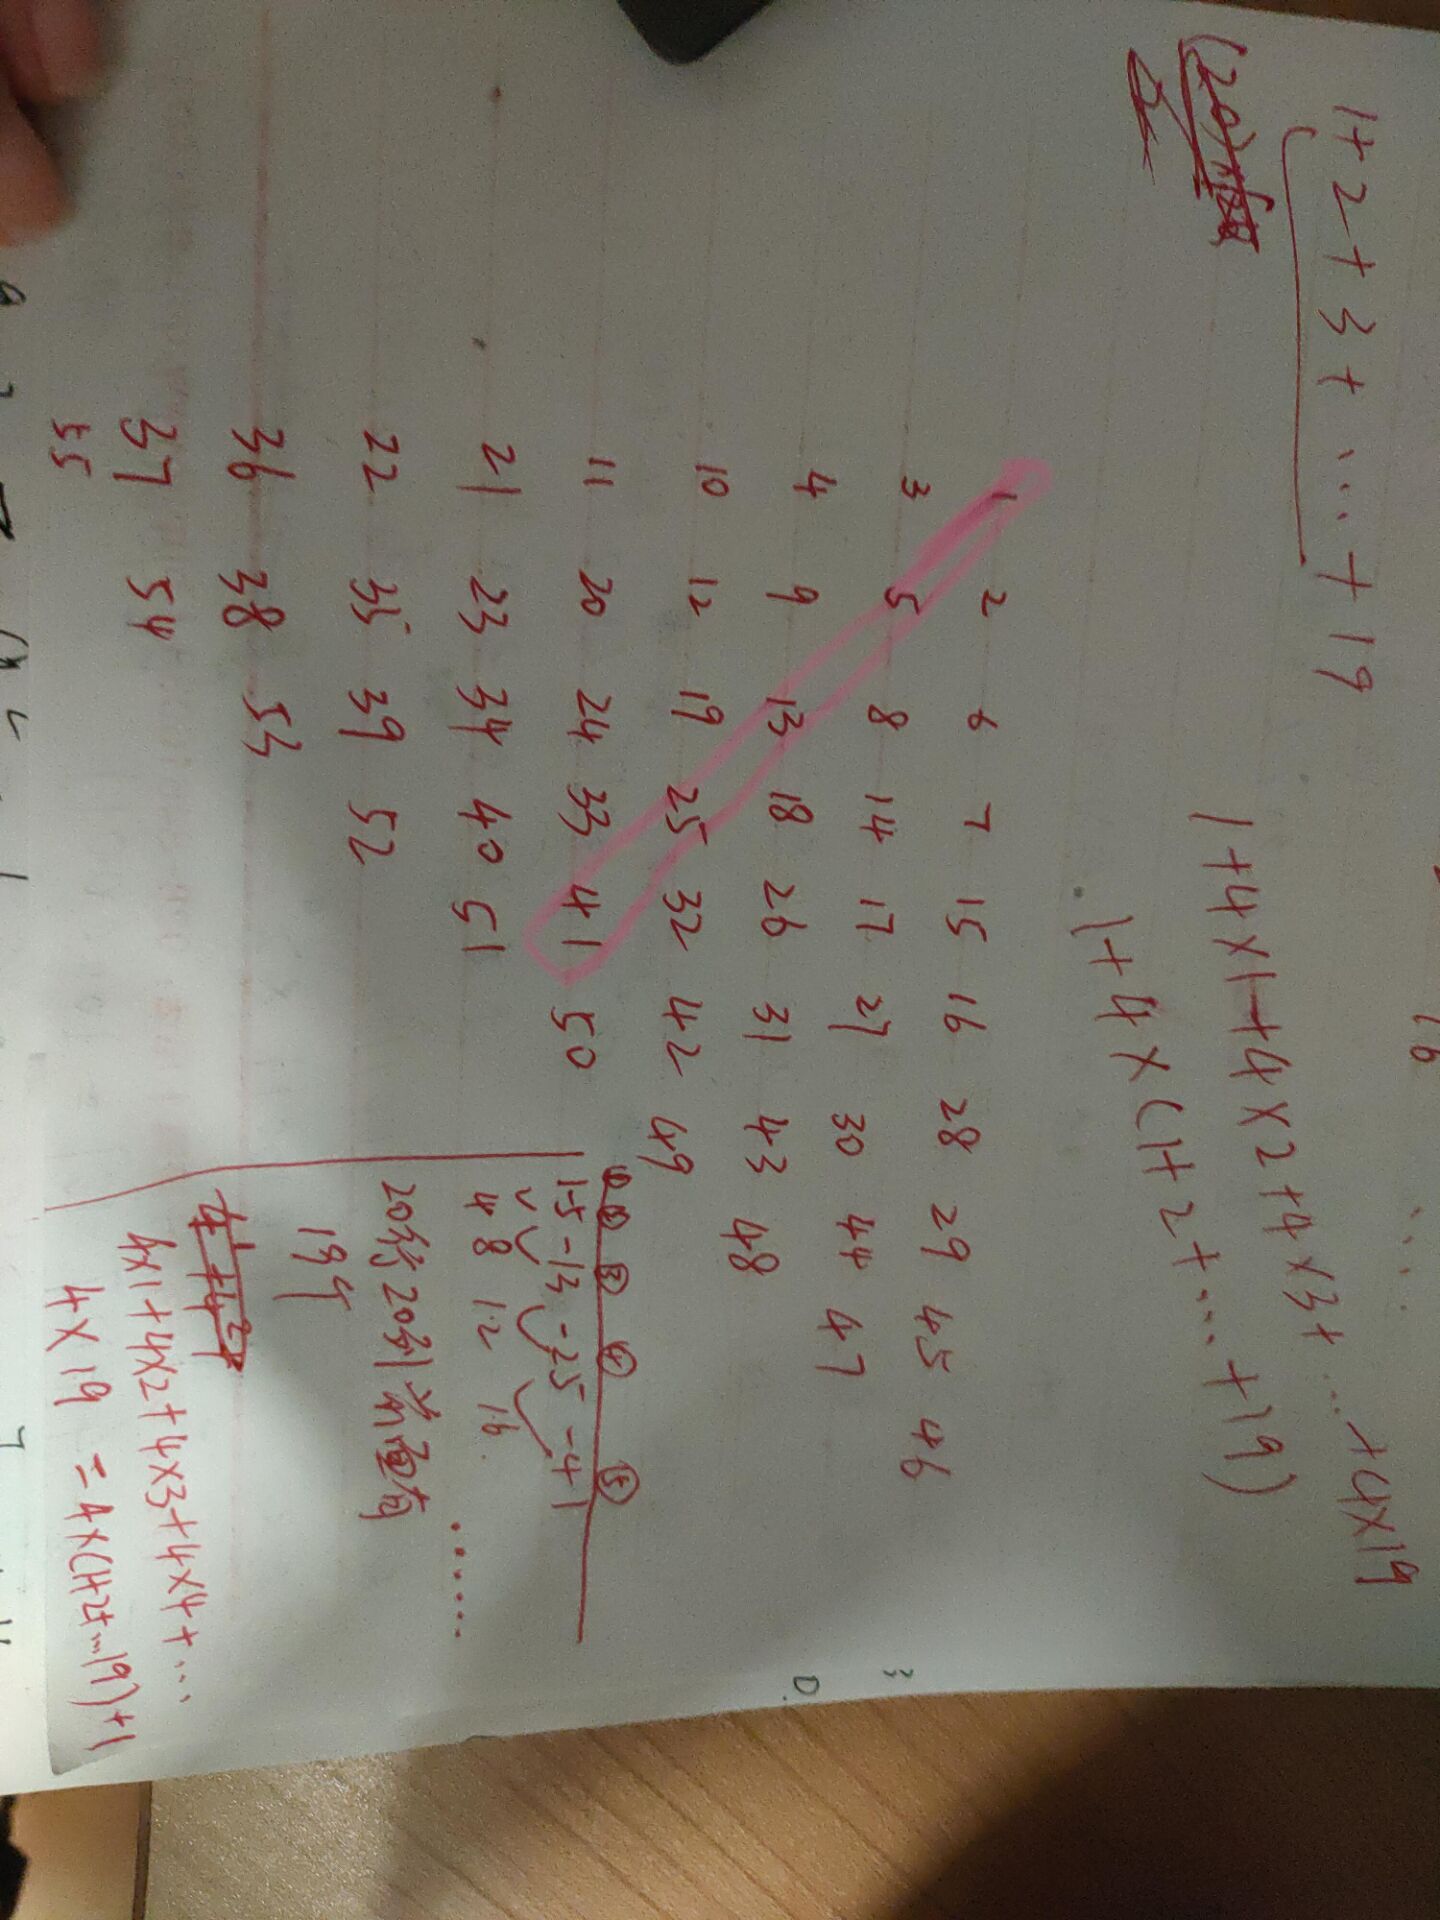 1+2+3+...+19
1+4×1+4×2+4×3+...+4×19
1+4×(1+2+...+19)
1 2 6 7 15 16 28 29 45 46
3 5 8 14 17 27 30 44 47
4 9 13 18 26 31 43 48
10 12 19 25 32 42 49
11 20 24 33 41 50
21 23 34 40 51
22 35 39 52
36 38 53
37 54
55
① ② ③ ④ ⑤
1-5-13-25-41
4 8 12 16 ......
20行20列前面有
19个
4×1+4×2+4×3+4×4+...
4×19 =4×(1+2+...19)+1